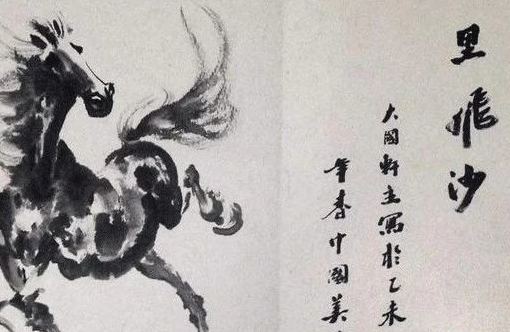 里飛沙
大國軒主寫於乙未
年春中國美